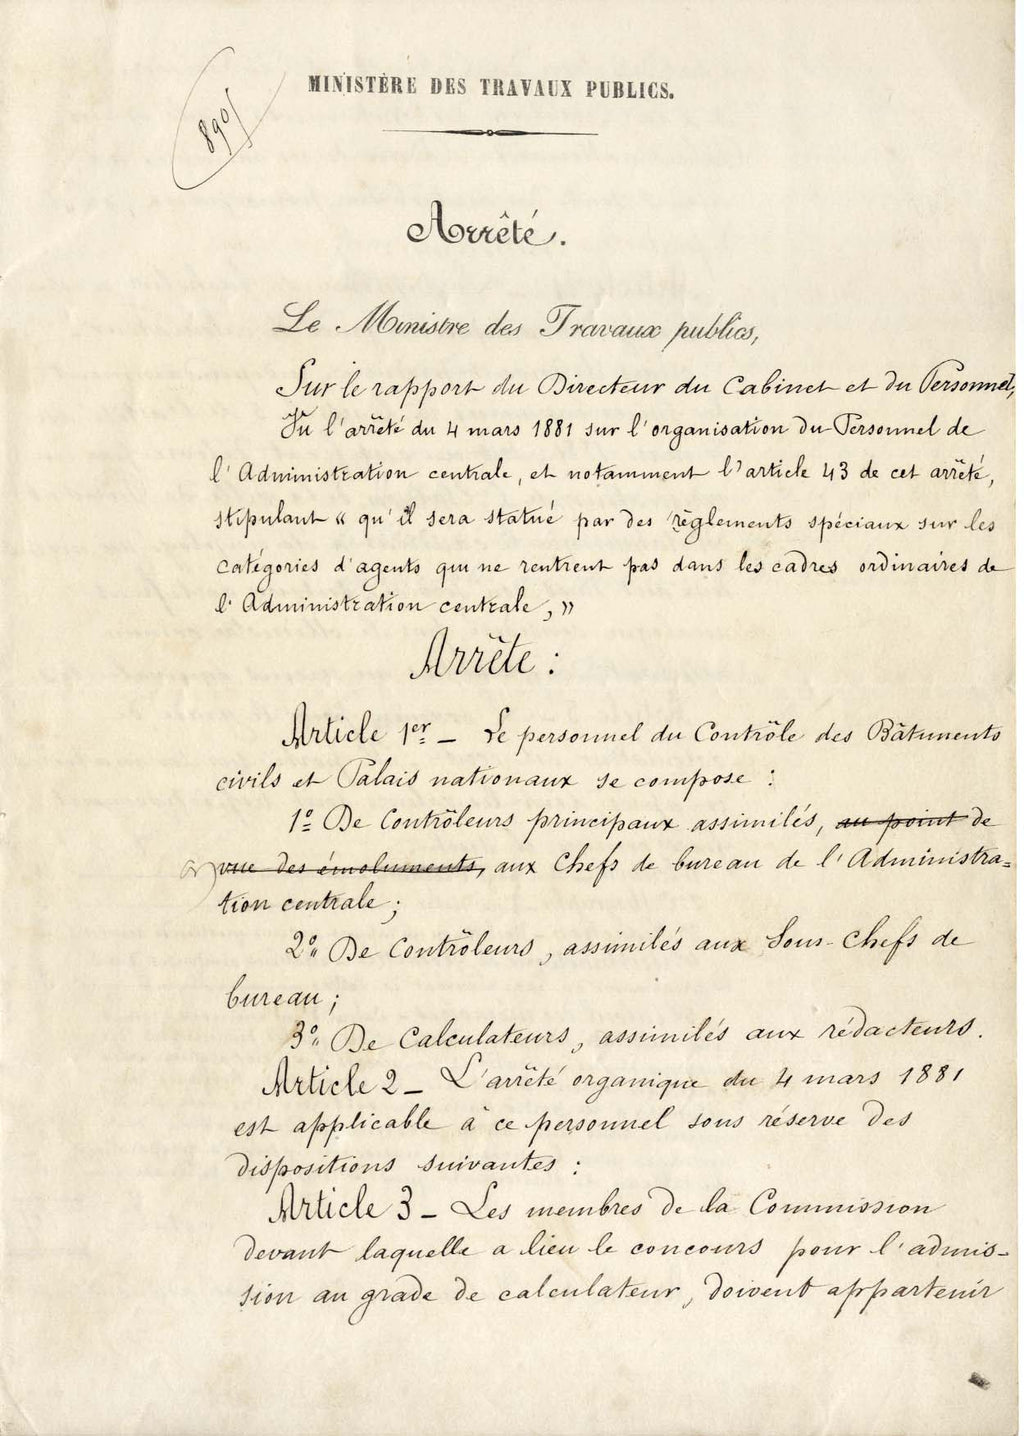 MINISTÈRE DES TRAVAUX PUBLICS.
890
Arrêté.
Le Ministre des Travaux publics,
Sur le rapport du Directeur du Cabinet et du Personnel,
Vu l'arrêté du 4 mars 1881 sur l'organisation du Personnel de
l'Administration centrale, et notamment l'article 43 de cet arrêté,
stipulant « qu'il sera statué par des règlements spéciaux sur les
catégories d'agents qui ne rentrent pas dans les cadres ordinaires de
l'Administration centrale, »
Arrête :
Article 1er _ Le personnel du Contrôle des Bâtiments
civils et Palais nationaux se compose :
1º De Contrôleurs principaux assimilés, au point de
vue des émoluments, aux Chefs de bureau de l'Administra=
tion centrale ;
2º De Contrôleurs, assimilés aux Sous-Chefs de
bureau ;
3º De Calculateurs, assimilés aux rédacteurs.
Article 2 _ L'arrêté organique du 4 mars 1881
est applicable à ce personnel sous réserve des
dispositions suivantes :
Article 3 _ Les membres de la Commission
devant laquelle a lieu le concours pour l'admis-
sion au grade de calculateur, doivent appartenir